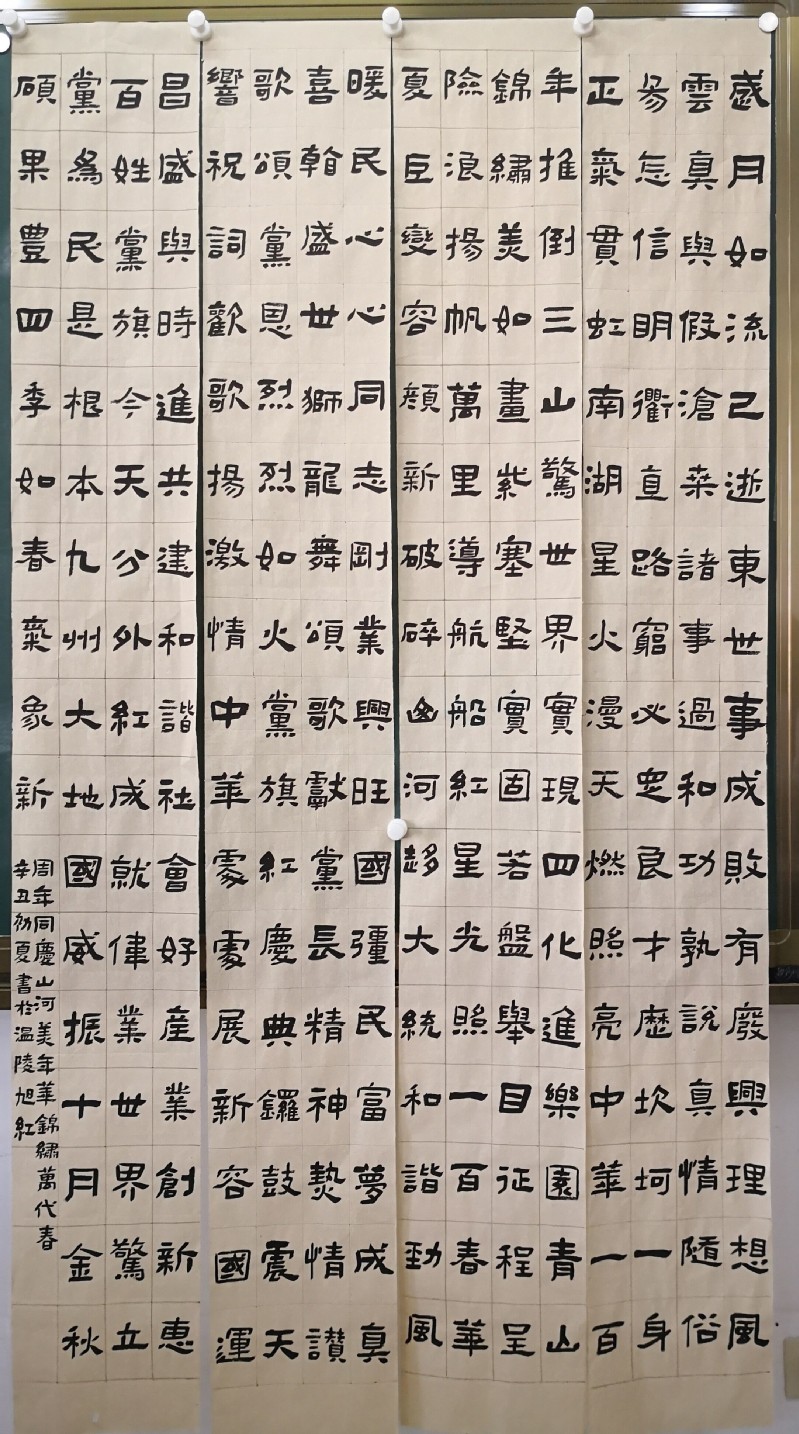 歲月如流己逝東世事成敗有廢興理想風
雲真與假滄桑諸事過和功孰說真情隨俗
易怎信明衢直路窮必忠良才歷坎坷一身
正氣貫虹南湖星火漫天燃照亮中華一百
年推倒三山驚世界實現四化進樂園青山
錦繡美如畫紫塞堅實固若盤舉目征程呈
險浪揚帆萬里導航船紅星光照一百春華
夏巨變容顏新破碎山河趍大統和諧勁風
暖民心心同志剛業興旺國彊民富夢成真
喜翰盛世獅龍舞頌歌獻黨長精神熱情讚
歌頌黨恩烈烈如火黨旗紅慶典鑼鼓震天
響祝詞歡歌揚激情中華處處展新容國運
昌盛與時進共建和諧社會好產業創新惠
百姓黨旗今天分外紅成就偉業世界驚立
黨為民是根本九州大地國威振十月金秋
碩果豐四季如春氣象新
周年同慶山河美年華錦繡萬代春
辛丑初夏書於溫陵旭紅